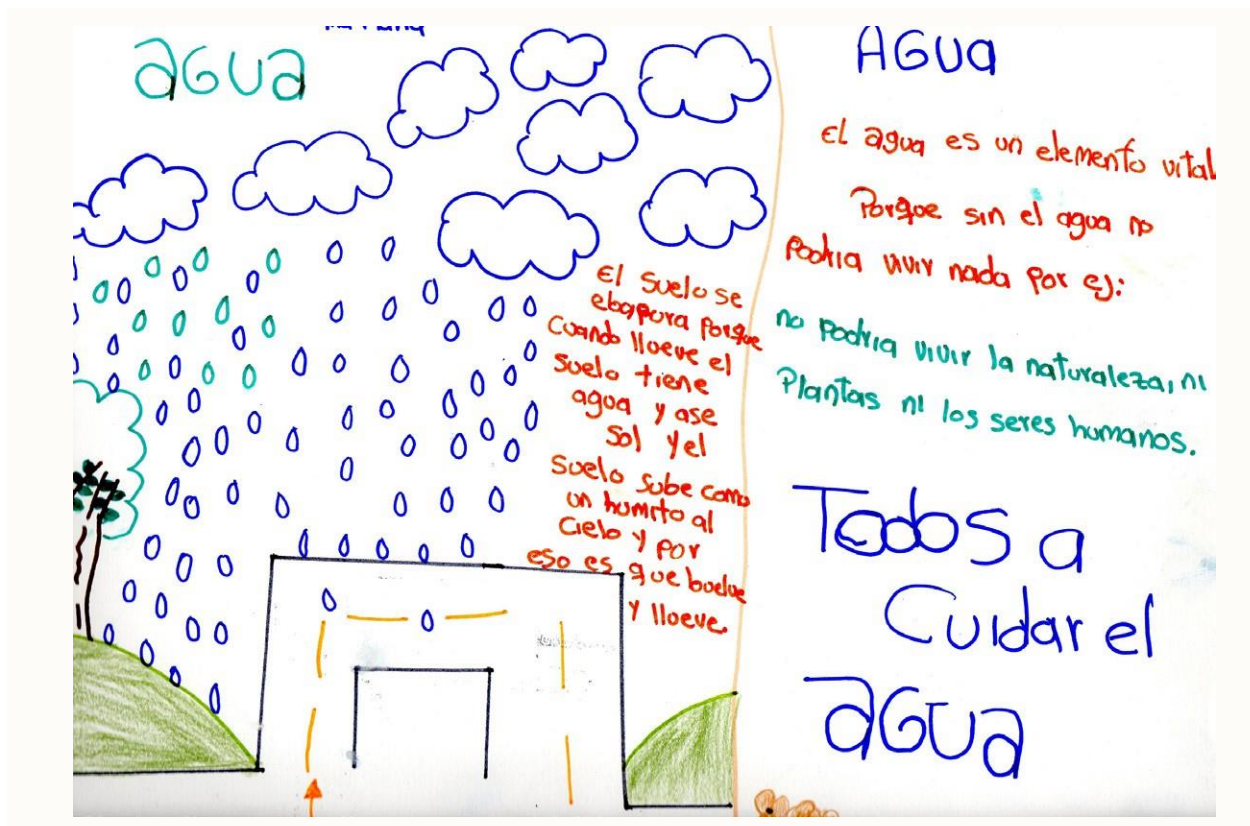 AGUA
El suelo se
ebapora porque
Cuando llueve el
suelo tiene
agua y ase
sol y el
suelo sube como
un humito al
cielo y por
eso es que buelve
y llueve.
AGUA
El agua es un elemento vital
Porque sin el agua no
Podria vivir nada por ej:
no Podria vivir la naturaleza, ni
Plantas ni los seres humanos.
Todos a
Cuidar el
AGUA